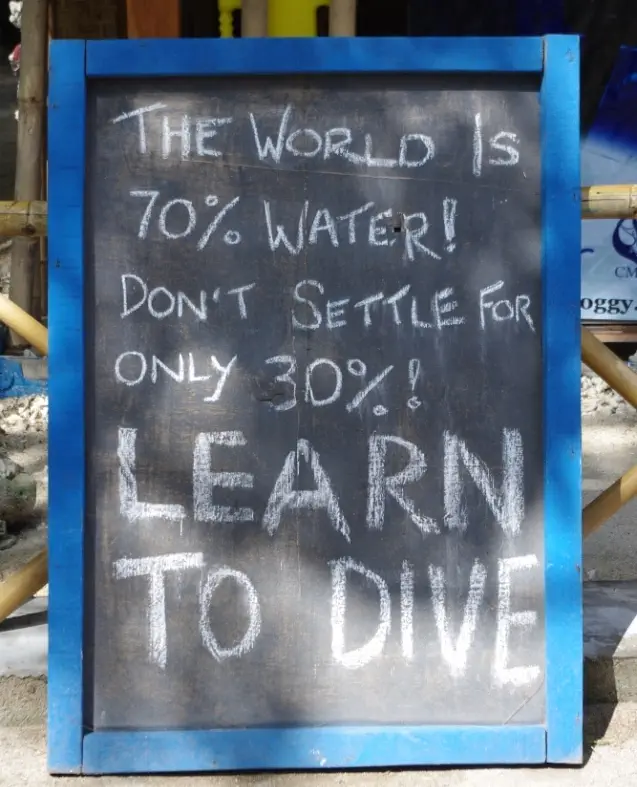 THE WORLD IS
70% WATER!
DON'T SETTLE FOR
ONLY 30%!
LEARN
TO DIVE
CM
oggy.